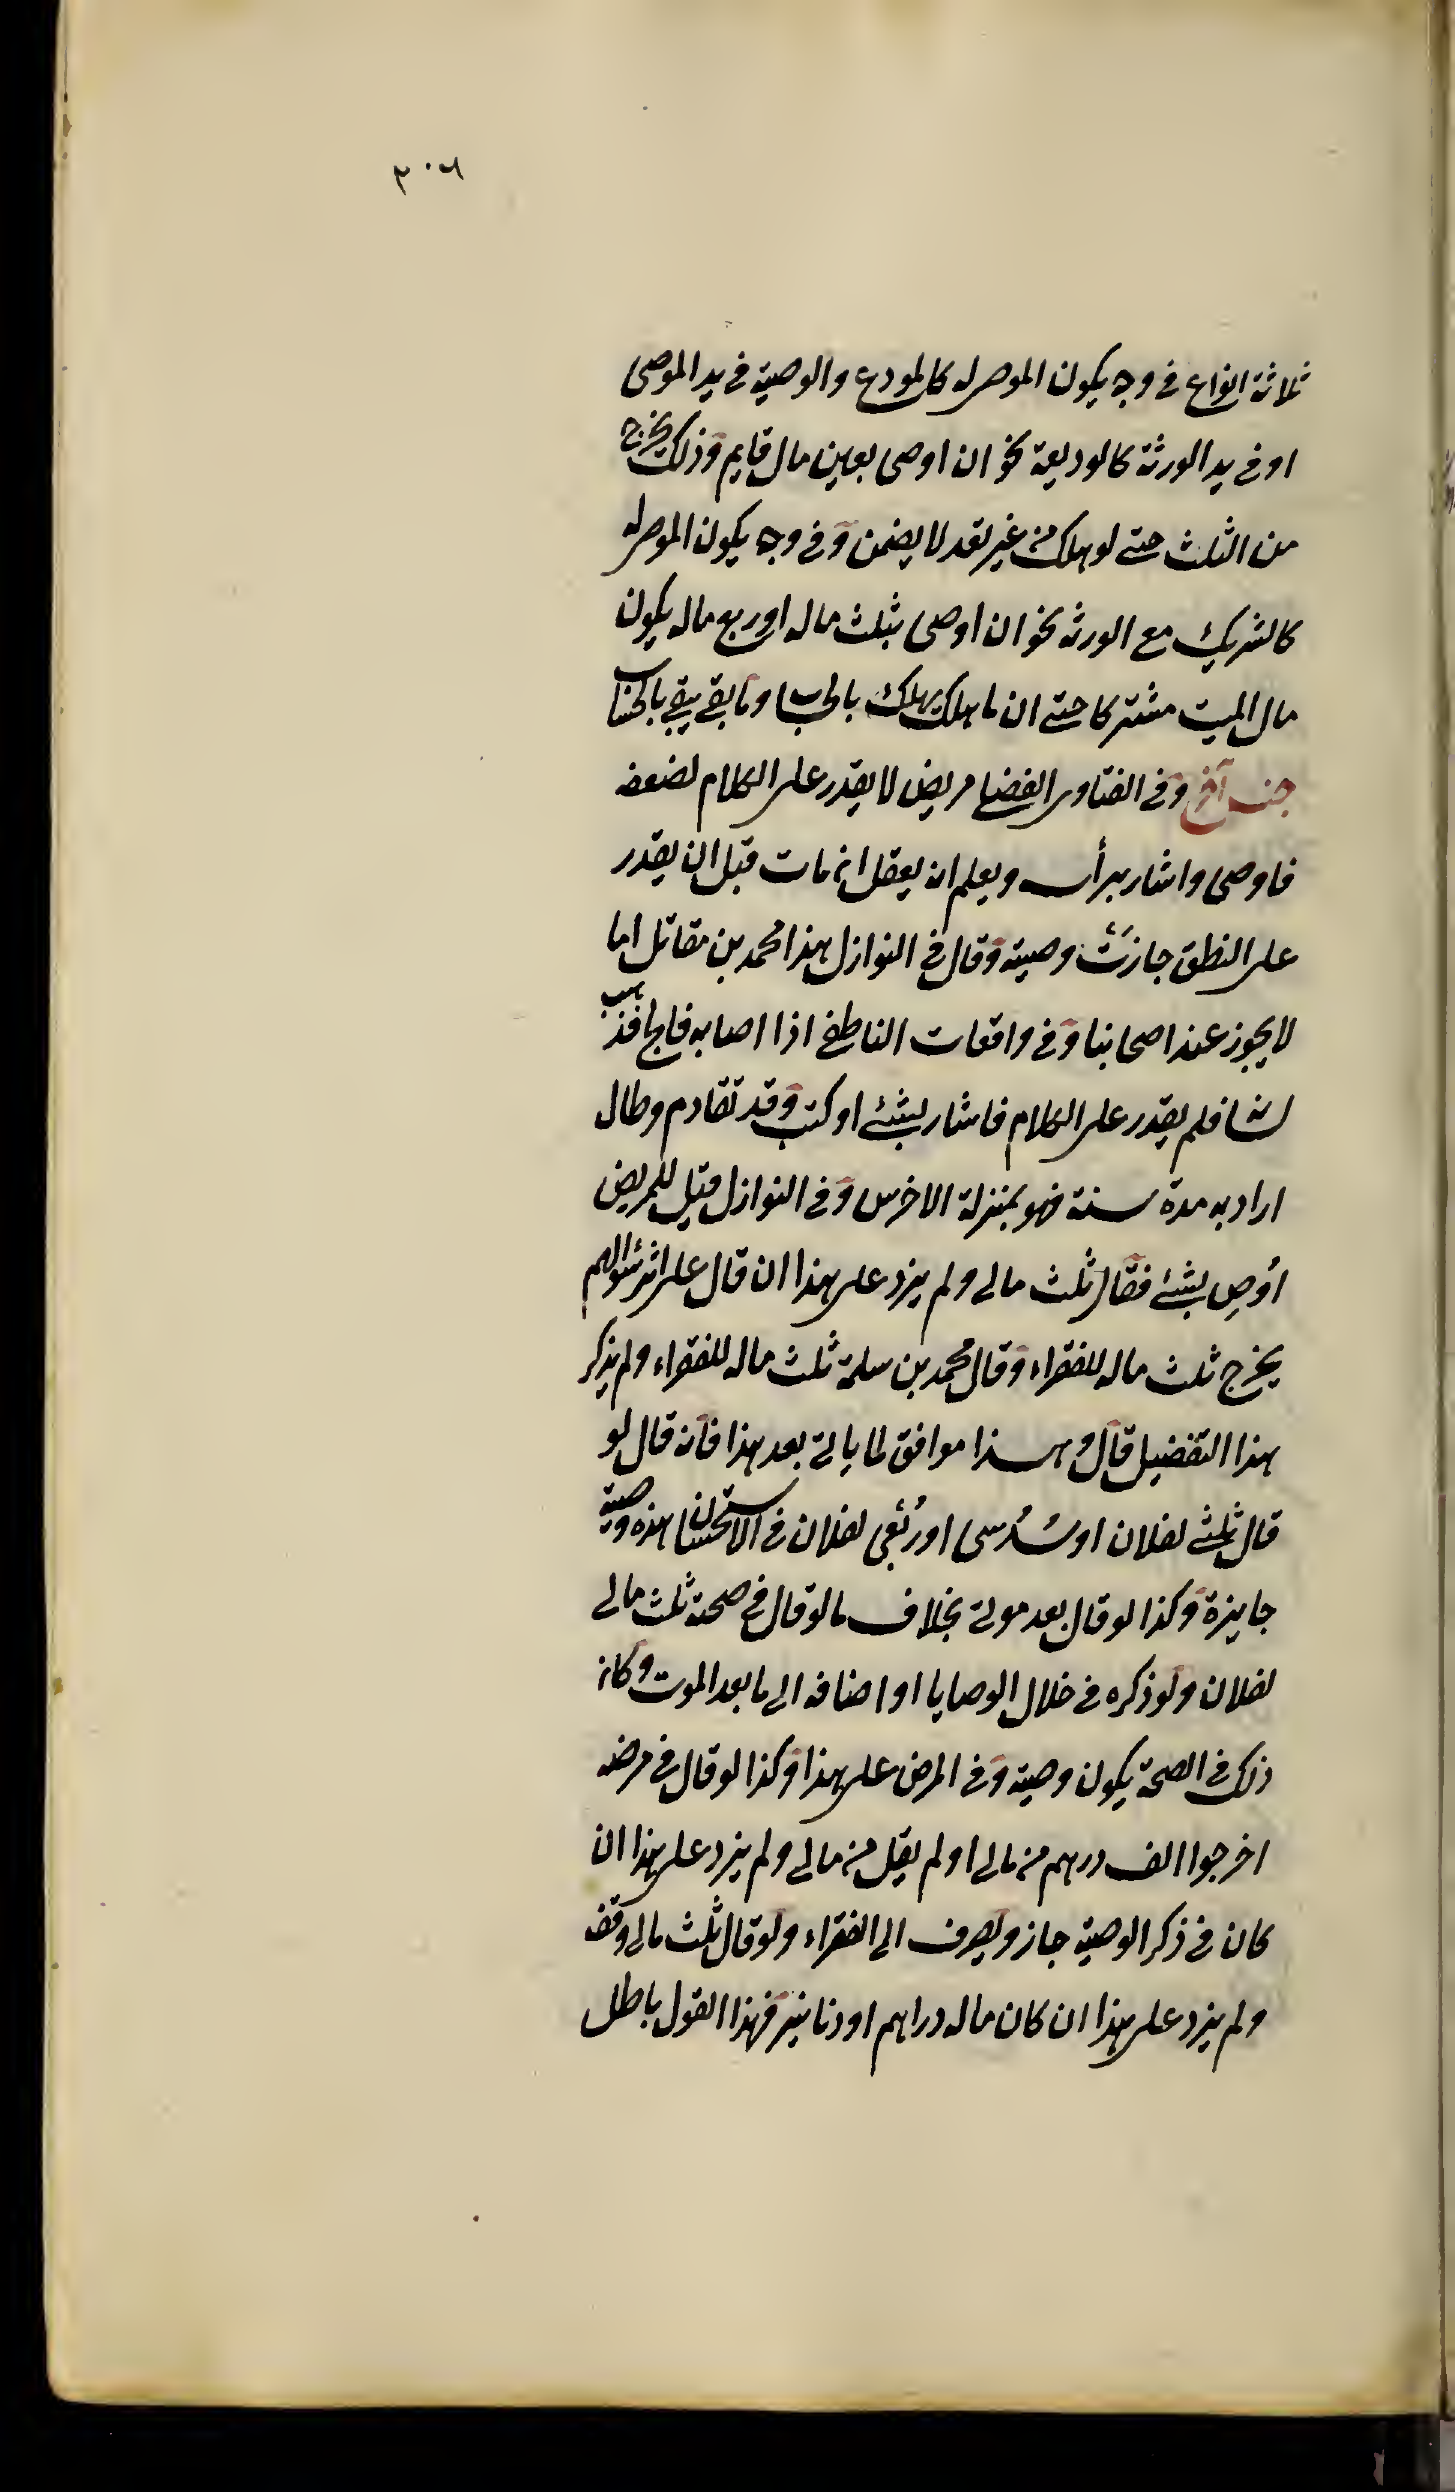 ثلاثة انواع في وجه يكون الموصى له كالمودع والوصية في يد الموصى
او في يد الورثة كالوديعة نحو ان اوصى بعين مال قايم وذلك يخرج
من الثلث حتى لو هلك من غير تعد لا يضمن وفي وجه يكون الموصى له
كالشريك مع الورثة نحو ان اوصى بثلث ماله او ربع ماله يكون
مال الميت مشتركا حتى ان ما هلك يهلك بالحساب وما بقي يبقى بالحساب
جنس آخر وفي الفتاوى الفضلي مريض لا يقدر على الكلام لضعفه
فاوصى واشار برأسه ويعلم انه يعقل انه مات قبل ان يقدر
على النطق جازت وصيته وقال في النوازل هذا محمد بن مقاتل اما
لا يجوز عند اصحابنا وفي واقعات الناطفي اذا اصابه فالج فذهب
لسانه فلم يقدر على الكلام فاشار بشئ او كتب وقد تقادم وطال
اراد به مدة سنة فهو بمنزلة الاخرس وفي النوازل قيل للمريض
اوصِ بشئ فقال ثلث مالي ولم يزد على هذا ان قال على اثر سؤالهم
يخرج ثلث ماله للفقراء وقال محمد بن سلمة ثلث ماله للفقراء ولم يذكر
هذا التفضيل قال وهذا موافق لما ياتي بعد هذا فانه قال لو
قال ثلثي لفلان او سُدسي او رُبعي لفلان في الاستحسان هذه وصية
جايزة وكذا لو قال بعد موتي بخلاف ما لو قال في صحته ثلث مالي
لفلان ولو ذكره في خلال الوصايا او اضافه الى ما بعد الموت وكان
ذلك في الصحة يكون وصية وفي المرض على هذا وكذا لو قال في مرضه
اخرجوا الف درهم من مالي او لم يقل من مالي ولم يزد على هذا ان
كان في ذكر الوصية جاز ويصرف الى الفقراء ولو قال ثلث مالي وقف
ولم يزد على هذا ان كان ماله دراهم او دنانير فهذا القول باطل